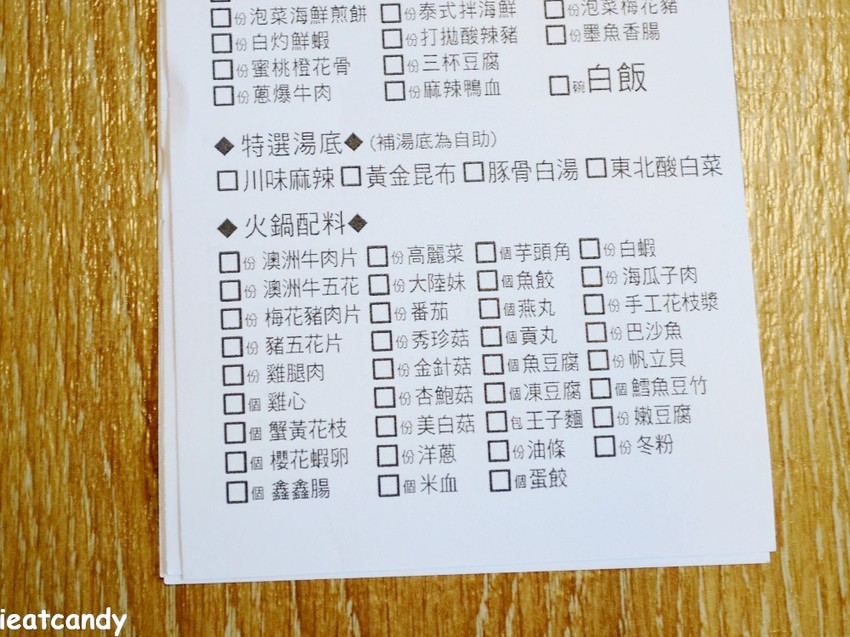 □份泡菜海鮮煎餅 □份泰式拌海鮮 □份泡菜梅花豬
□份白灼鮮蝦 □份打拋酸辣豬 □份墨魚香腸
□份蜜桃橙花骨 □份三杯豆腐
□份蔥爆牛肉 □份麻辣鴨血 □碗白飯
◆特選湯底◆(補湯底為自助)
□川味麻辣 □黃金昆布 □豚骨白湯 □東北酸白菜
◆火鍋配料◆
□份 澳洲牛肉片 □份高麗菜 □個芋頭角 □份白蝦
□份 澳洲牛五花 □份大陸妹 □個魚餃 □份海瓜子肉
□份 梅花豬肉片 □份番茄 □個燕丸 □份手工花枝漿
□份 豬五花片 □份秀珍菇 □個貢丸 □份巴沙魚
□份 雞腿肉 □份金針菇 □個魚豆腐 □份帆立貝
□個 雞心 □份杏鮑菇 □個凍豆腐 □個鱈魚豆竹
□個 蟹黃花枝 □份美白菇 □包王子麵 □份嫩豆腐
□個 櫻花蝦卵 □份洋蔥 □份油條 □份冬粉
□個 鑫鑫腸 □個米血 □個蛋餃
ieatcandy